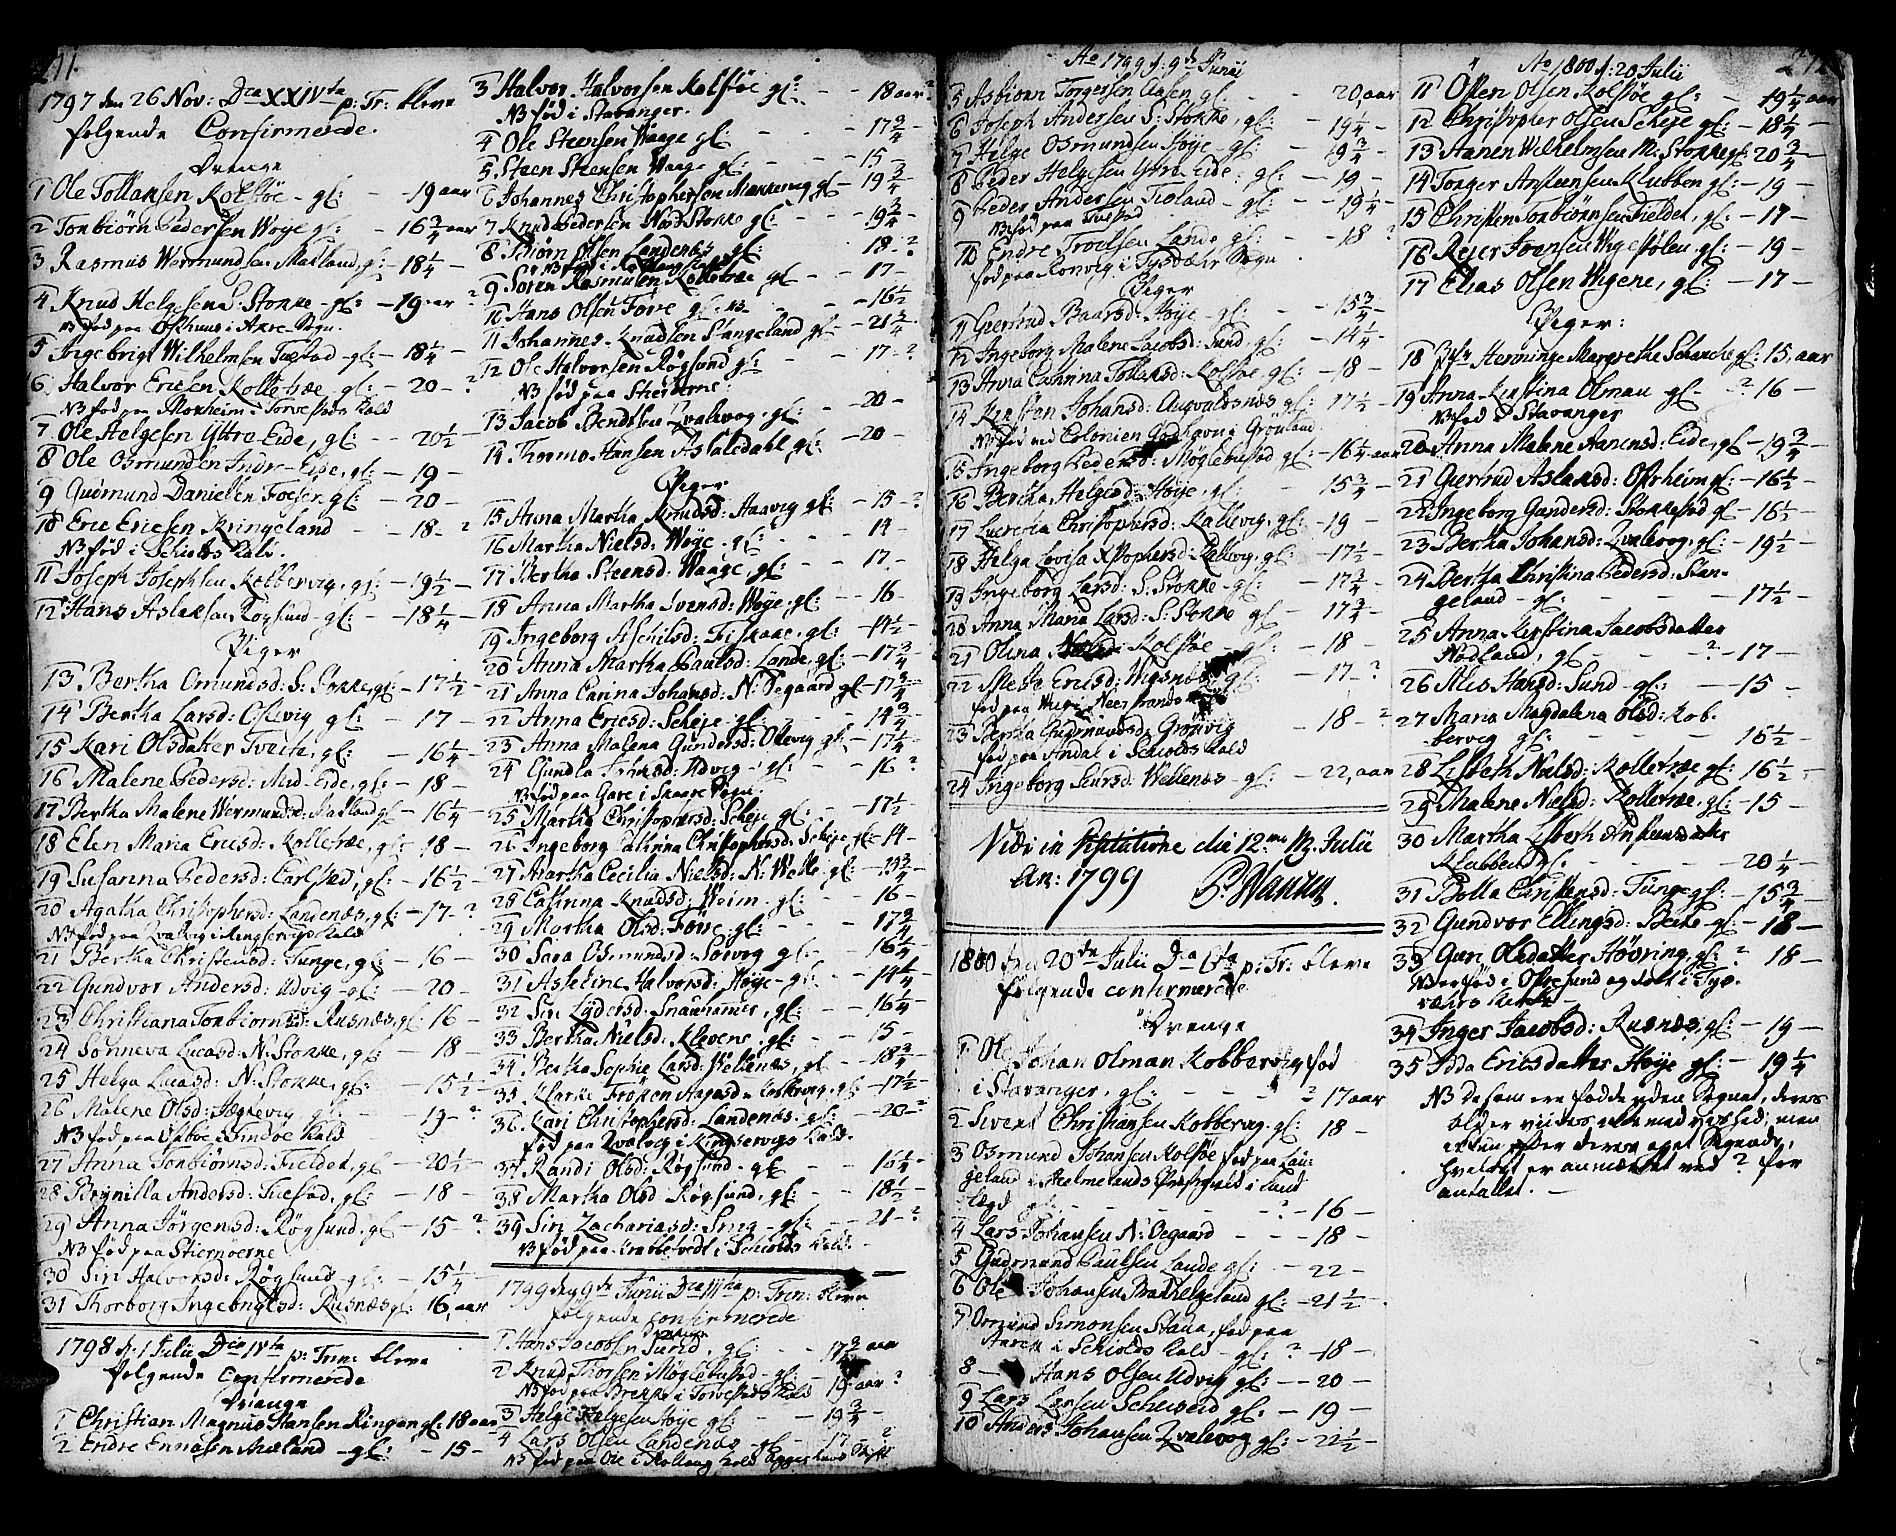 1797 den 26 Nov: Dca XXIVta p: Tr: bleve
følgende Confirmerede.
Drenge
1 Ole Tollaksen Kolstøe - gl: - 19 aar
2 Tonbiørn Pedersen Woye gl: - 16 3/4 aar
3 Rasmus Wermundsen Matland, gl: - 18 1/4 -
4 Knud Helgesen S: Stokke - gl: - 19 aar ?
NB fød paa i Sogn.
5 Ingebrigt Wilhelmsen Tuestad - gl: - 18 1/4 -
6 Halvor Ericsen Kolletræe gl: - 20 - ?
NB fød paa Moxheim i Torvestads Kald
7 Ole Helgesen Yttre-Eide, gl: - 20 1/2 -
8 Ole Osmundsen Indre-Eide, gl: - 19 -
9 Gudmund Danielsen Foesen, gl: - 20 -
10 Eric Ericsen Kringeland - 18 - ?
NB fød i Schiolds Kald.
11 Joseph Josephsen Kobbervig, gl: - 19 1/2 -
12 Hans Aslaksen Røgsund - gl: - 18 1/4 -
Piger
13 Bertha Omundsd: S: Stokke, gl: - 17 1/2 -
14 Bertha Larsd: Ollevig gl: - 17 -
15 Kari Olsdatter Tveita, gl: - 16 1/4 -
16 Malene Pedersd: Mid-Eide, gl: - 18 -
17 Bertha Malene Wermundsd: Matland gl: - 16 1/4 -
18 Elen Maria Ericsd: Kolletræe, gl: - 18 -
19 Susanna Pedersd: Carlstad, gl: - 16 1/2 -
20 Agatha Christophersd: Landenæs, gl: - 17 - ?
NB fød paa Qvalvog i Ringservigs Kald
21 Bertha Christensd: Tunge, gl: - 16 -
22 Gundvor Andersd: Udvig - gl: - 20 -
23 Christiana Tonbiørnsd: Rusnæs, gl: 16 -
24 Sonneva Lucasd: N: Stokke, gl: - 18 -
25 Helga Lucasd: N: Stokke, gl: - 15 1/2 -
26 Malene Olsd: Hægrevig, gl: - 19 - ?
NB fød paa i Findøe Kald
27 Anna Tonbiørnsd: Fieldet, gl - 20 1/2 -
28 Brynilla Andersd: Tuestad, gl: - 18 -
29 Anna Jørgensd: Røgsund, gl - 15 - ?
NB fød paa Stiernøerne
30 Siri Halvorsd: Røgsund - gl: - 15 1/4 -
31 Thorborg Ingebrigtsd: Rusnæs gl: 16, aar
1798 d: 1 Julii Dca IVta p: Trin: bleve
følgende Confirmerede
Drenge
1 Christian Magnus Hansen Ringen gl: 18 aar
2 Endre Ennesen Mieland - gl: - 15 -
3 Halvor Halvorsen Kolstøe gl: - 18 aar ?
NB fød i Stavanger.
4 Ole Steensen Waage gl: - 17 3/4
5 Steen Steensen Waage gl: - 15 -
6 Johannes Christophersen Makkevig gl - 19 3/4
7 Knud Pedersen Nord Stokke gl: - 19 3/4
8 Biørn Olsen Landenæs gl: - 18 - ?
9 Søren Rasmusen Kolletræe gl - 17 -
10 Hans Olsen Førre gl: - 16 1/2
11 Johannes Knudsen Stangeland gl - 21 3/4
12 Ole Halvorsen Røgsund gl: - 17 - ?
NB fød paa Stiernerne
13 Jacob Bendtsen Qvalevog, gl: - 20 -
14 Thormo Hansen Aslaledahl, gl: - 20 -
Piger
15 Anna Martha Knudsd: Haavig gl: - 15 - ?
16 Martha Nielsd: Woye, gl: - 14 -
17 Bertha Steensd: Waage, gl: - 17 -
18 Anna Martha Ivensd: Woye, gl: - 16 -
19 Ingeborg Aschilsd: Fiskaae, gl: - 14 1/2 -
20 Anna Martha Paulsd: Lande, gl: - 17 3/4
21 Anna Carina Johansd: N: Øegaard gl - 17 3/4
22 Anna Ericsd: Scheje gl: - 14 3/4
23 Anna Malena Gundersd: Ollevig gl: - 17 1/4
24 Gundla Udvig - gl: - 16 ?
NB fød paa Gare i Skaare Sogn.
25 Martha Christophersd: Scheje gl: - 17 1/2 -
26 Ingeborg Cathrina Christophersd: Scheje, gl: - 14 -
27 Martha Cecilia Nielsd: N: Wette gl: - 13 3/4
28 Cathrina Knudsd: Weim - gl: - 16 -
29 Martha Olsd: Førre - gl: - 17 3/4
30 Sara Osmundsd: Solvog gl: - 16 1/4
31 Asseline Halvorsd: Høye - gl: - 14 1/4
32 Siri Lydersd: Snauhammer, gl: - 16 1/4
33 Bertha Nielsd: Klevene, gl: - 15 -
34 Bertha Sophie Larsd: Vettenæs, gl - 18 3/4
35 Klarke Frøken Aagaard Kobbervig, gl - 17 1/2 -
36 Kari Christophersd: Landenæs - gl: - 20 - ?
fød paa Qvalvog i Ringservigs Kald.
37 Randi Olsd: Røgsund - gl: - 16 1/4
38 Martha Olsd Røgsund, gl: - 18 1/2 -
39 Siri Zachariasd: Smig - gl: - 21 - ?
NB fød paa Krabbetvedt i Schiolds Kald.
1799 den 9de Junii Dca IIIta p: Trin: bleve
følgende confirmerede
1 Hans Jacobsen Sund, gl: - 17 3/4 aar
2 Knud Thorsen Møglebustad - gl: - 19 aar ?
NB fød paa Brekke i Torvestads Kald
3 Helge Helgesen Høye gl: - 19 3/4 -
4 Lars Olsen Landenæs - gl - 17 - ?
NB fød paa Oie i Kolbangs Kald Aggershuus Stift
Ao 1799 d. 9de Junii
5 Asbiørn Torgersen Aasen gl - 20, aar
6 Joseph Andersen S: Stokke, gl: - 19 1/4 -
7 Helge Osmundsen Høye - gl: - 19 3/4 -
8 Peder Helgesen Yttre-Eide: gl: - 19 -
9 Peder Andersen Fioland - gl: - 19 1/4 -
NB fød paa Tuestad
10 Endre Troelsen Lande gl: - 18 ?
fød paa Ronvig i Tysdæhr Sogn
Piger
11 Giertrud Baarsd: Høye - gl: - 15 3/4 -
12 Ingeborg Malene Jacobsd: Sund, gl: - 14 1/4 -
13 Anna Cathrina Tollaksd: Kolstøe, gl: - 18 -
14 Kirsten Johansd: Augvaldsnæs gl: - 17 1/2 -
NB fød ved Colonien Godhavn i Grønland
15 Ingeborg Pedersd: Møglebustad gl: - 16 1/4 aar
16 Bertha Helgesd: Høye, gl: - 15 3/4 -
17 Lucretia Christophersd: Kallevig, gl: - 19 -
18 Helga Lovisa XPophersd: Kallevig, gl: - 17 1/2 -
19 Ingeborg Larsd: S: Stokke - gl: - 17 3/4 -
20 Anna Maria Larsd: S: Stokke gl - 17 3/4 -
21 Olina Kolstøe - gl: - 18 -
22 Metta Ericsd: Wigsnæs gl: - 17 - ?
fød paa i Neerstrands
23 Bertha Gudmundsd: Grønvig - 18 - ?
fød paa Andal i Schiolds Kald
24 Ingeborg Siursd: Wettenæs - gl: - 22, aar
Vidi in Visitatione die 12ma M. Julii
An: 1799 P. Hansen.
1800 den 20de Julii Dca 6ta p: Tr: bleve
følgende confirmerede
Drenge
1 Ole Johan Olman Kobbervig fød
i Stavanger, gl: - ? 17 aar
2 Sivert Christiansen Kobbervig, gl: 18 -
3 Osmund Johansen Kolstøe fød paa Lau-
geland i Hielmelands Præstegield i Land
Lægd gl: - ? - 16 -
4 Lars Johansen N: Øegaard - 18 -
5 Gudmund Paulsen Lande gl: - 22 -
6 Ole Johansen Bakkelgeland gl: - 21 1/2 -
7 Omund Simonsen Stava, fød paa
i Schiolds Kald - gl: ? - 18 -
8 - Hans Olsen Udvig gl: - 20 -
9 Lars Larsen Scheiveid gl: - 19 -
10 Anders Johansen Qvalevog gl: - 21 1/2 -
Ao 1800 d: 20 Julii
272
11 Osten Olsen Kolstøe gl: - 19 1/4 aar
12 Christopher Olsen Scheje gl: - 18 1/4 -
13 Aanen Wilhelmsen M: Stokke gl: 20 3/4
14 Torger Anstensen Klubben gl: - 19 -
15 Christen Tonbiørnsen Fieldet, gl: - 17 -
16 Rejer Ivensen Wigestølen, gl: - 19
17 Elias Olsen Wigene, gl: - 17 -
Piger:
18 Jfr Henninge Margrethe Schancke gl: 15, aar
19 Anna Kirstina Olman gl - ? 16 -
NB fød i Stavanger
20 Anna Malene Aanensd: Eide, gl - 19 3/4 -
21 Giertrud Aslaksd: Ostrheim gl: - 16 1/2 -
22 Ingeborg Gundersd: Stokkestad gl - 16 1/2 -
23 Bertha Johansd: Qvalevog, gl: - 19 1/2 -
24 Bertha Christina Pedersd: Stan-
geland - gl: - 17 1/2 -
25 Anna Kirstina Jacobsdatter
Nodland, gl - ? - 17 -
26 Alis Hansd: Sund - gl: - 15 -
27 Maria Magdalena Olsd: Kob-
bervig gl: - 16 1/2 -
28 Lisbeth Nielsd: Kolletræe gl: 16 1/2 -
29 Malene Nielsd: Kolletræe, gl: - 15 -
30 Martha Lisbeth Anstensdatter
Klubben gl: - 20 1/4 -
31 Bolla Christensd: Tunge gl: - 15 3/4 -
32 Gundvor Ellingsd: Beite - gl: - 18 -
33 Guri Olsdatter Høvring, gl: ? 18 -
NB er fød i Ostresund og døbt i Tys-
værs Kirke -
34 Inger Jacobsd: Rusnæs, gl: - 19 -
35 Idda Ericsdatter Høye gl: - 19 1/4
NB De som ere fødde uden Sognet, deres
older viides ikke med vished, men
efter deres eget Sigende,
hvilket er anmærket ved ? for
antallet. -